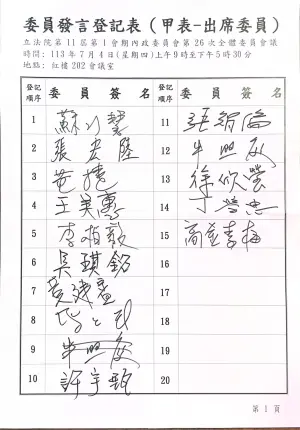 委員發言登記表（甲表-出席委員）
立法院第11屆第1會期內政委員會第26次全體委員會議
時間：113年7月4日(星期四)上午9時至下午5時30分
地點：紅樓202會議室
登記順序 委員簽名
1 蘇巧慧
2 張宏陸
3 黃捷
4 王美惠
5 李柏毅
6 吳琪銘
7 黃建賓
8
9 牛煦庭
10 許宇甄
登記順序 委員簽名
11 張智倫
12 牛煦庭
13 徐欣瑩
14 丁學忠
15 高金素梅
16
17
18
19
20
第1頁